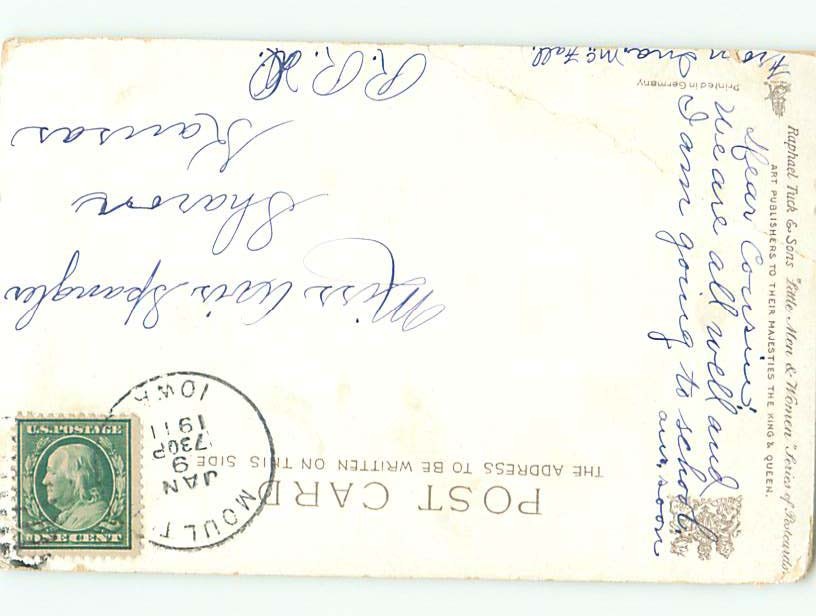 POST CARD
THE ADDRESS TO BE WRITTEN ON THIS SIDE
MOULT
JAN
9
730P
1911
IOWA
U.S. POSTAGE
ONE CENT
Miss Avis Spangler
Sharon
Kansas
R.R.
Raphael Tuck & Sons "Little Men & Women" Series of Postcards
ART PUBLISHERS TO THEIR MAJESTIES THE KING & QUEEN.
Printed in Germany
Dear Cousin,
We are all well and
I am going to school.
ans. soon
Ina. McFall.